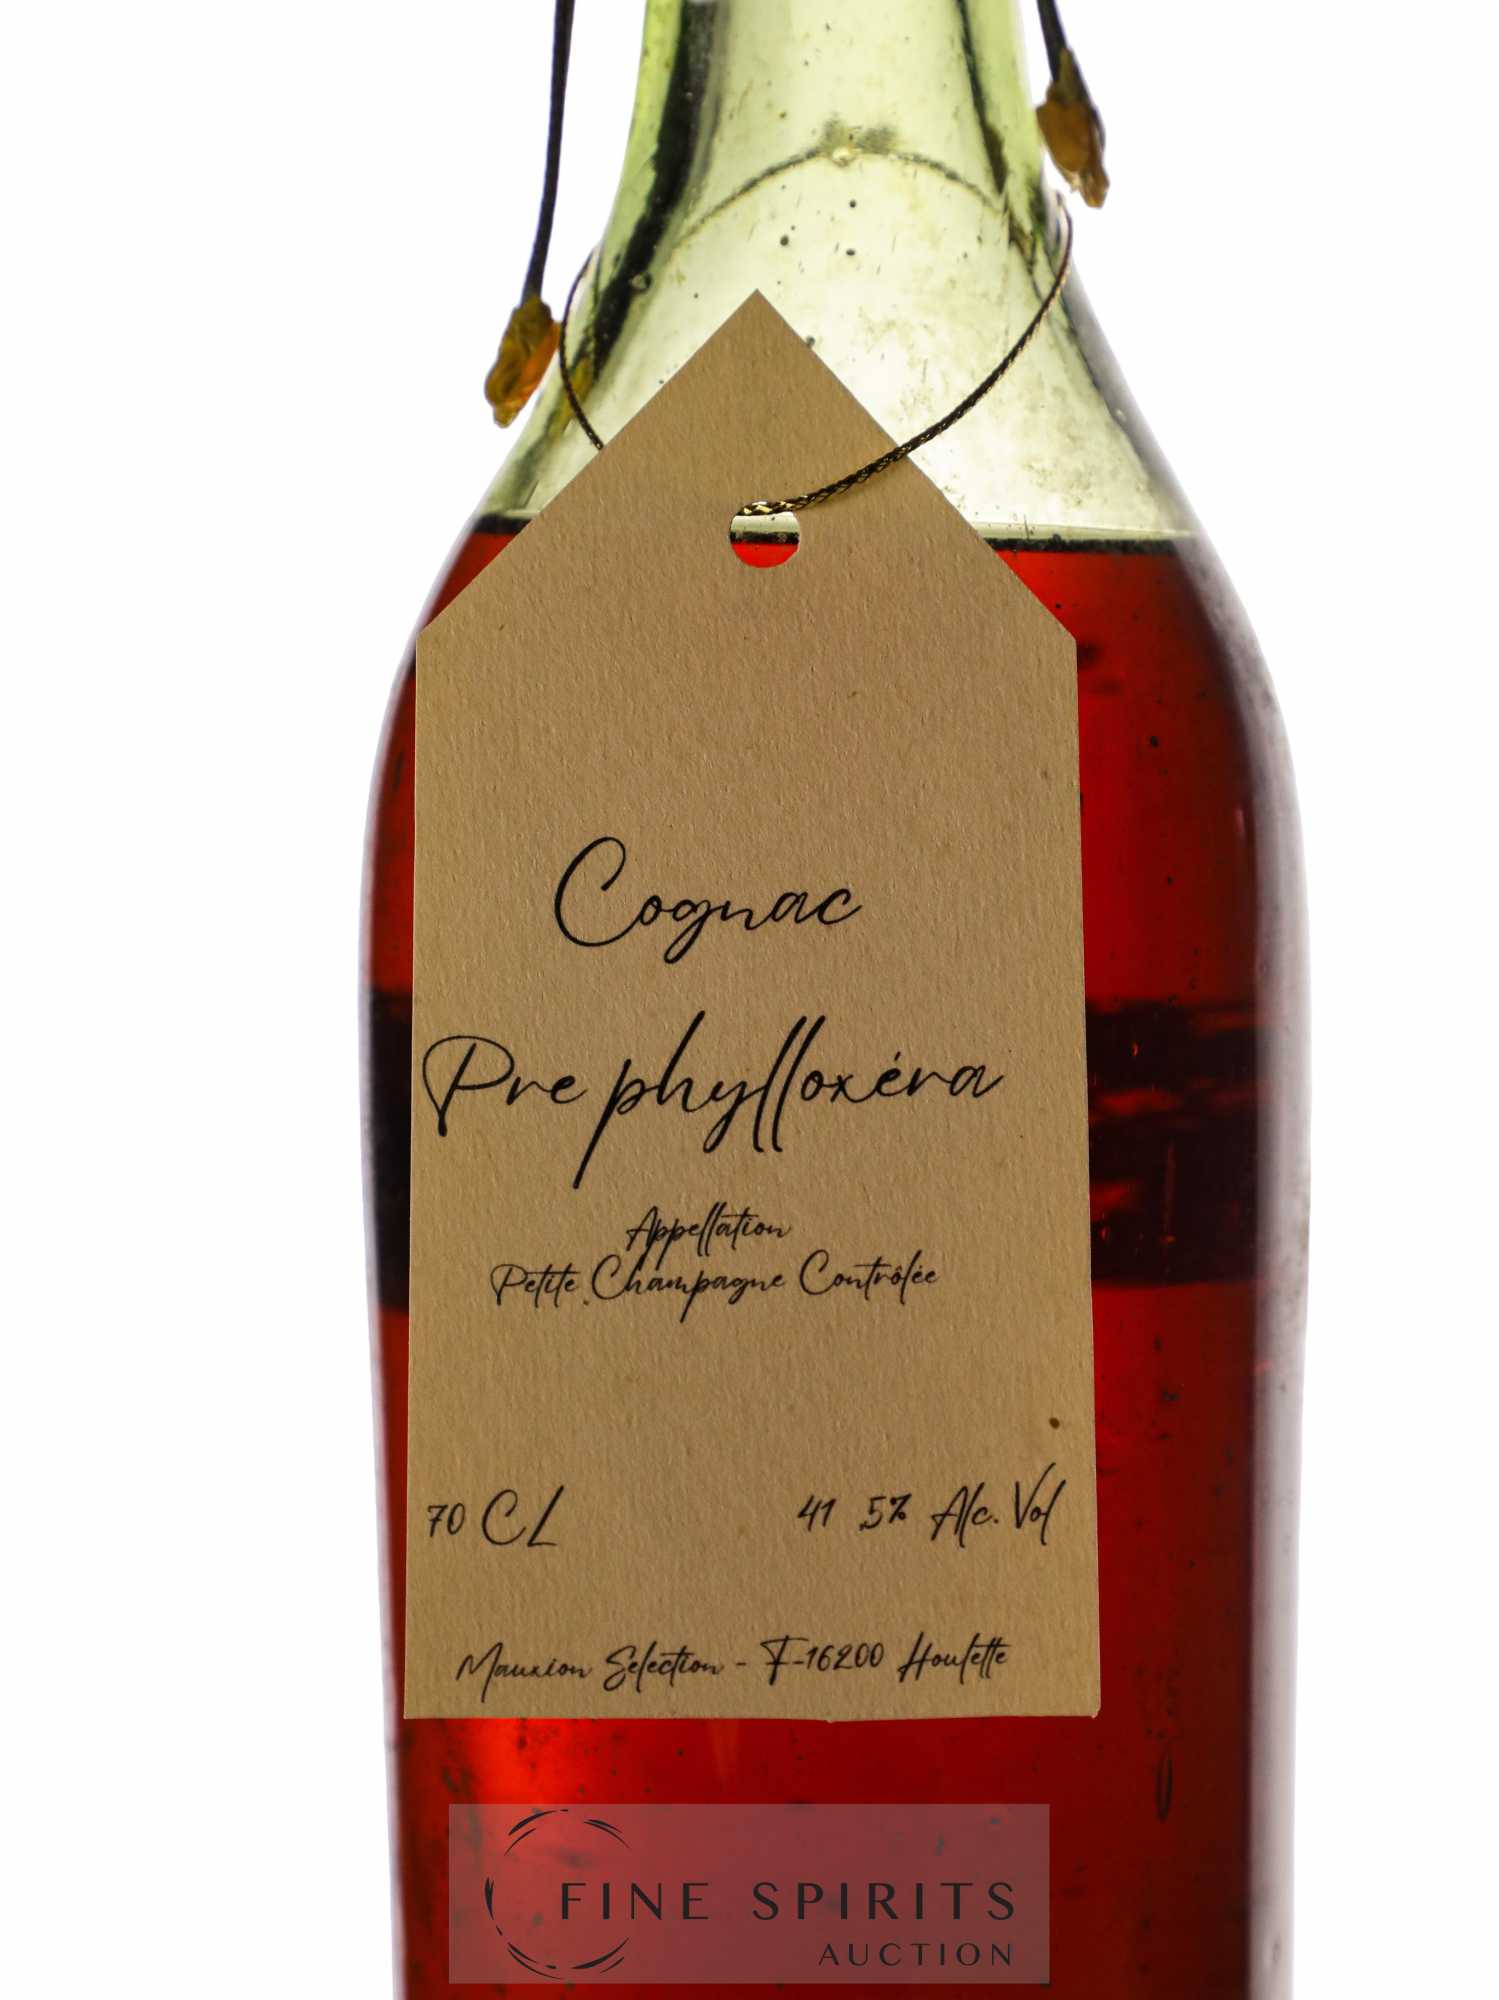 Cognac
Pre phylloxéra
Appellation
Petite Champagne Contrôlée
70 CL 41 5% Alc. Vol
Mauxion Selection - F-16200 Houlette
FINE SPIRITS
AUCTION